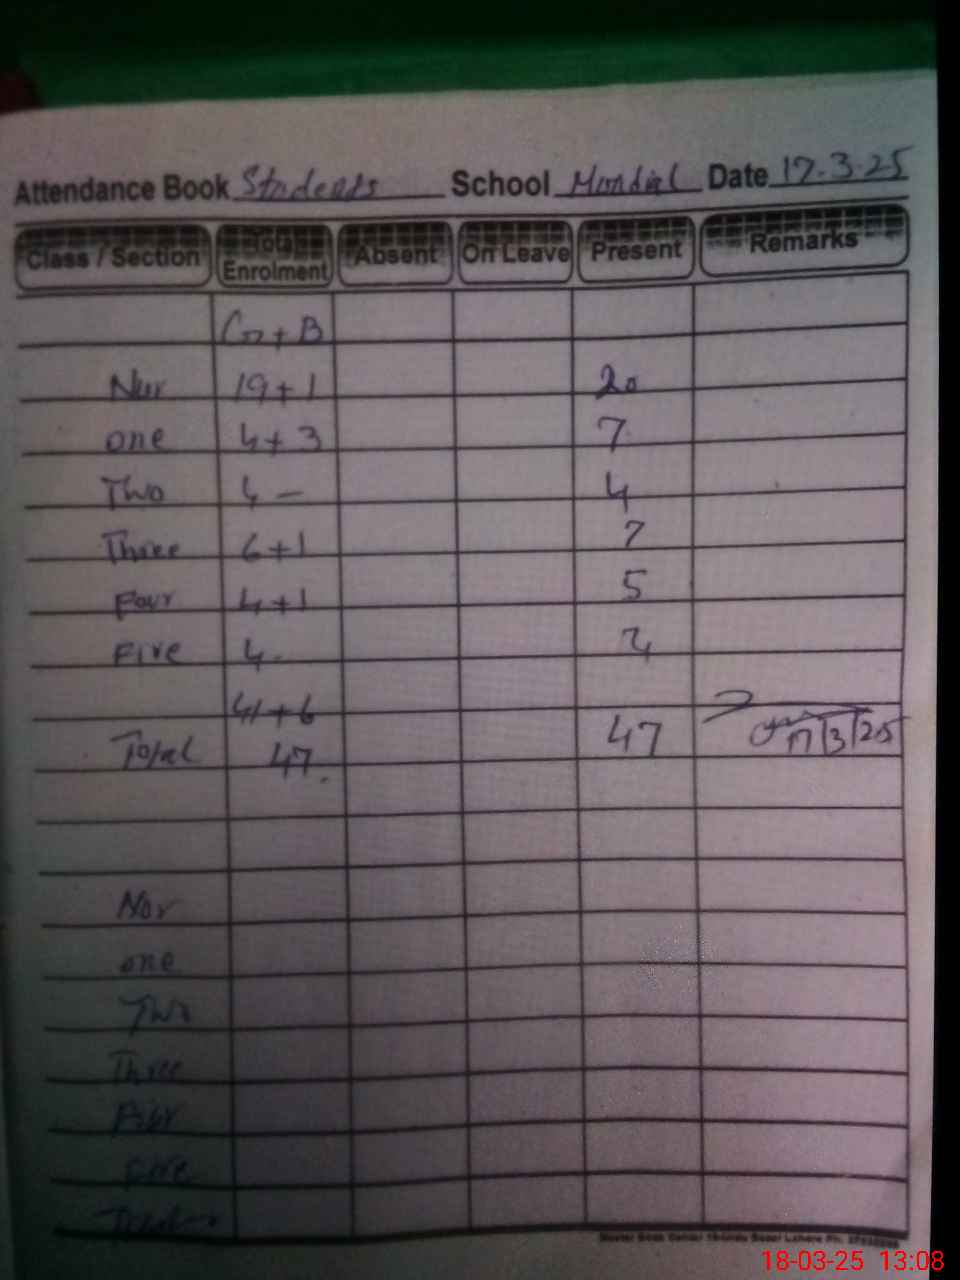 Attendance Book Students School Mundial Date 17.3.25
Class / Section Total Enrolment Absent On Leave Present Remarks
G + B
Nur 19 + 1 20
one 4 + 3 7
Two 4 — 4
Three 6 + 1 7
Four 4 + 1 5
Five 4 4
41 + 6
Total 47 47 17/3/25
Nor
one
Two
Three
Four
five
Total
18-03-25 13:08